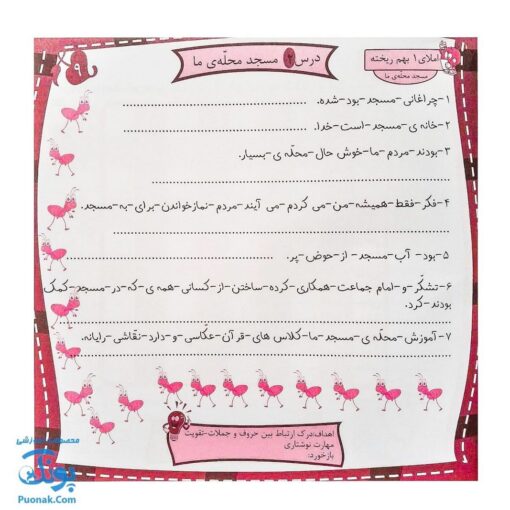 املای ۱ بهم ریخته
مسجد محلّه‌ی ما
درس ۲ مسجد محلّه‌ی ما
۹
۱-چراغانی-مسجد-بود-شده.
۲-خانه ی-مسجد-است-خدا.
۳-بودند-مردم-ما-خوش حال-محلّه ی-بسیار.
۴-فکر-فقط-همیشه-من-می کردم-می آیند-مردم-نمازخواندن-برای-به-مسجد.
۵-بود-آب-مسجد-از-حوض-پر.
۶-تشکّر-و-امام جماعت-همکاری-کرده-ساختن-از-کسانی-همه ی-که-در-مسجد-کمک
بودند-کرد.
۷-آموزش-محلّه ی-مسجد-ما-کلاس های-قرآن-عکّاسی-و-دارد-نقّاشی-رایانه.
اهداف:درک ارتباط بین حروف و جملات-تقویت
مهارت نوشتاری
بازخورد:
پونک
Puonak.Com